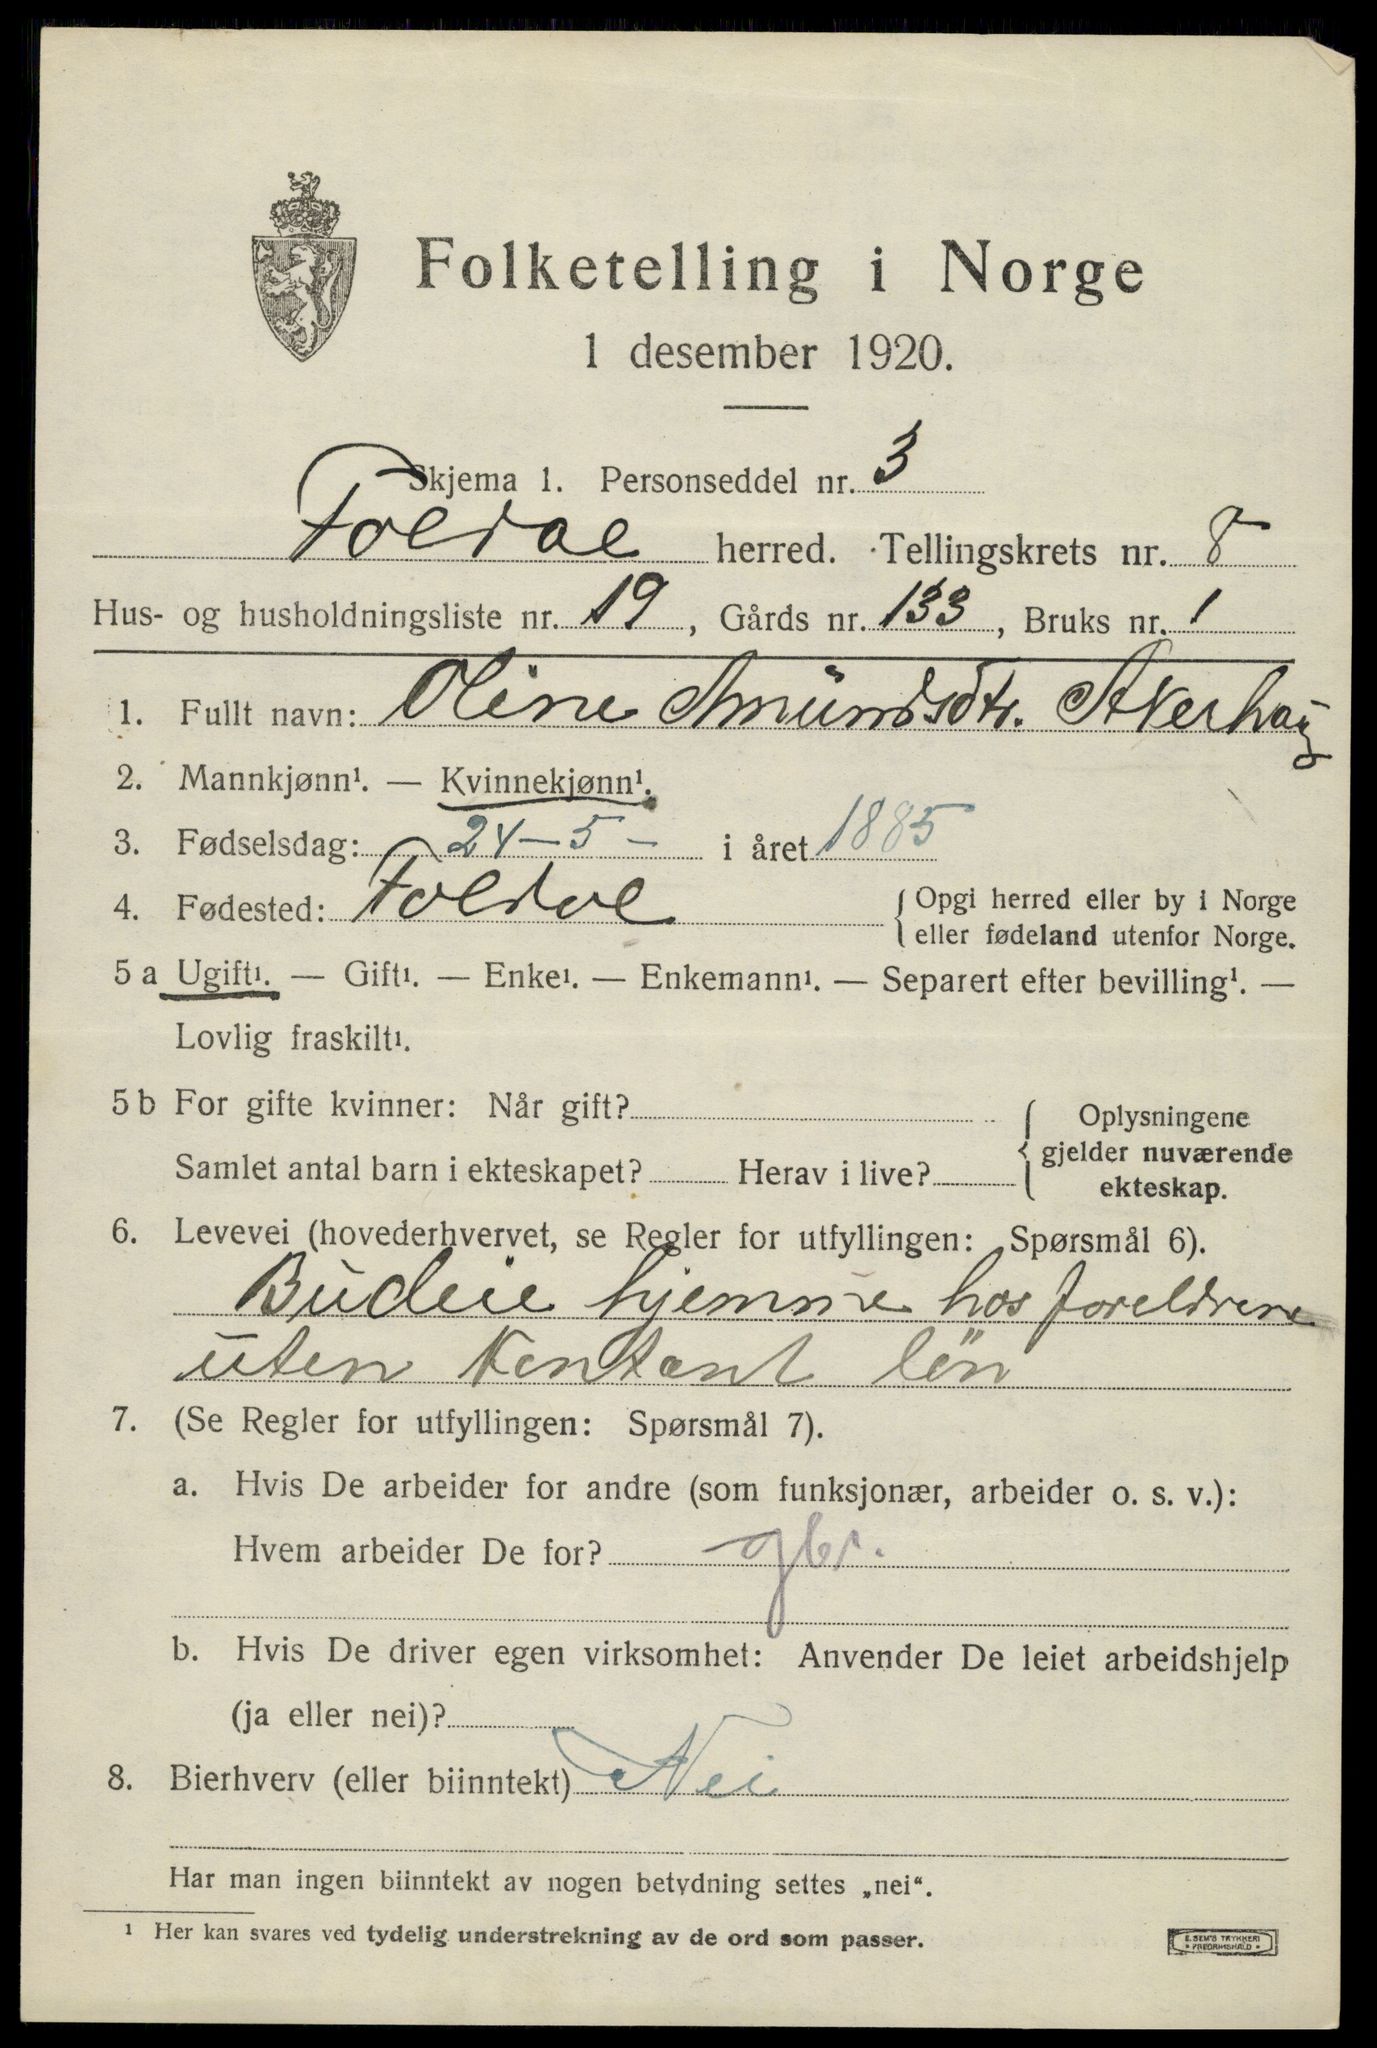 Folketelling i Norge
1 desember 1920.
Skjema 1. Personseddel nr. 3
Foldal herred. Tellingskrets nr. 8
Hus- og husholdningsliste nr. 19, Gårds nr. 133, Bruks nr. 1
1. Fullt navn: Oline Amundsdtr. Akerhaug
2. Mannkjønn¹. — Kvinnekjønn¹.
3. Fødselsdag: 24 - 5 - i året 1885
4. Fødested: Foldal { Opgi herred eller by i Norge
eller fødeland utenfor Norge.
5 a Ugift¹. — Gift¹. — Enke¹. — Enkemann¹. — Separert efter bevilling¹. —
Lovlig fraskilt¹.
5 b For gifte kvinner: Når gift? { Oplysningene
gjelder nuværende
ekteskap.
Samlet antal barn i ekteskapet? Herav i live?
6. Levevei (hovederhvervet, se Regler for utfyllingen: Spørsmål 6).
Budeie hjemme hos foreldrene
uten Kontant løn
7. (Se Regler for utfyllingen: Spørsmål 7).
a. Hvis De arbeider for andre (som funksjonær, arbeider o. s. v.):
Hvem arbeider De for? gbr.
b. Hvis De driver egen virksomhet: Anvender De leiet arbeidshjelp
(ja eller nei)?
8. Bierhverv (eller biinntekt) Nei
Har man ingen biinntekt av nogen betydning settes „nei“.
¹ Her kan svares ved tydelig understrekning av de ord som passer.
E. SEM'S TRYKKERI
• FREDRIKSHALD •